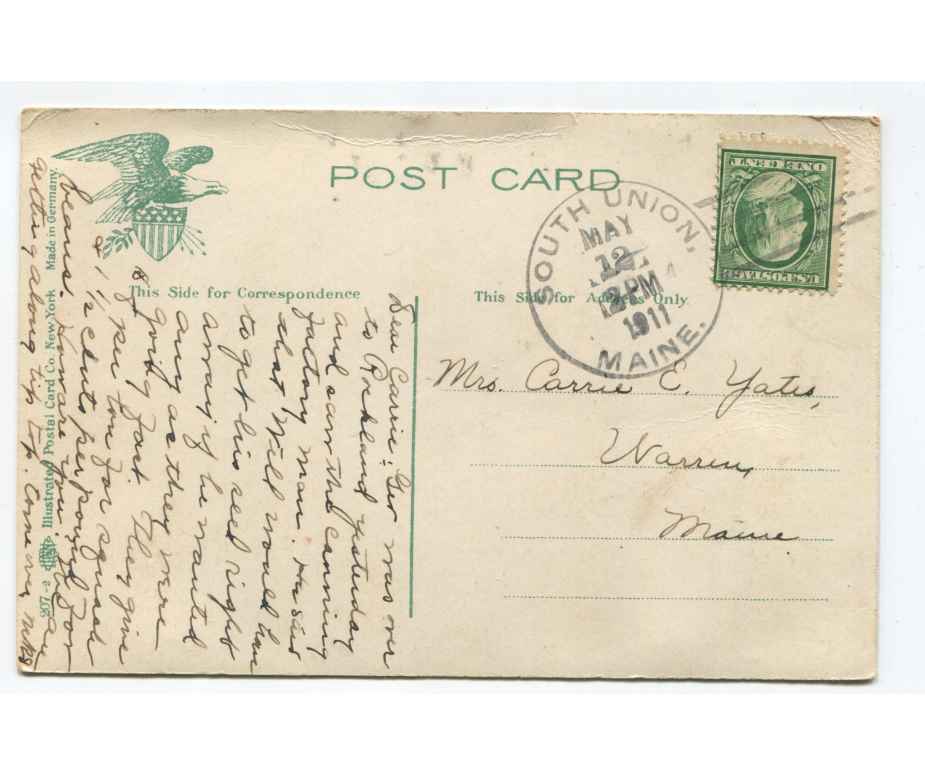 POST CARD
SOUTH UNION,
MAY
12
2 PM
1911
MAINE.
ONE CENT
U.S. POSTAGE
This Side for Correspondence
This Side for Address Only
Mrs. Carrie E. Yates,
Warren,
Maine
Dear Carrie: Geo was over
to Rockland yesterday
and saw the canning
factory man. He said
that Will would have
to get his seed right
away if he wanted
any as they were
going fast They give
$8 per ton for squash
& 1 1/2 cents per pound for
beans. How are you. We are
getting along tip top. Come over
207-2 Illustrated Postal Card Co. New York Made in Germany.